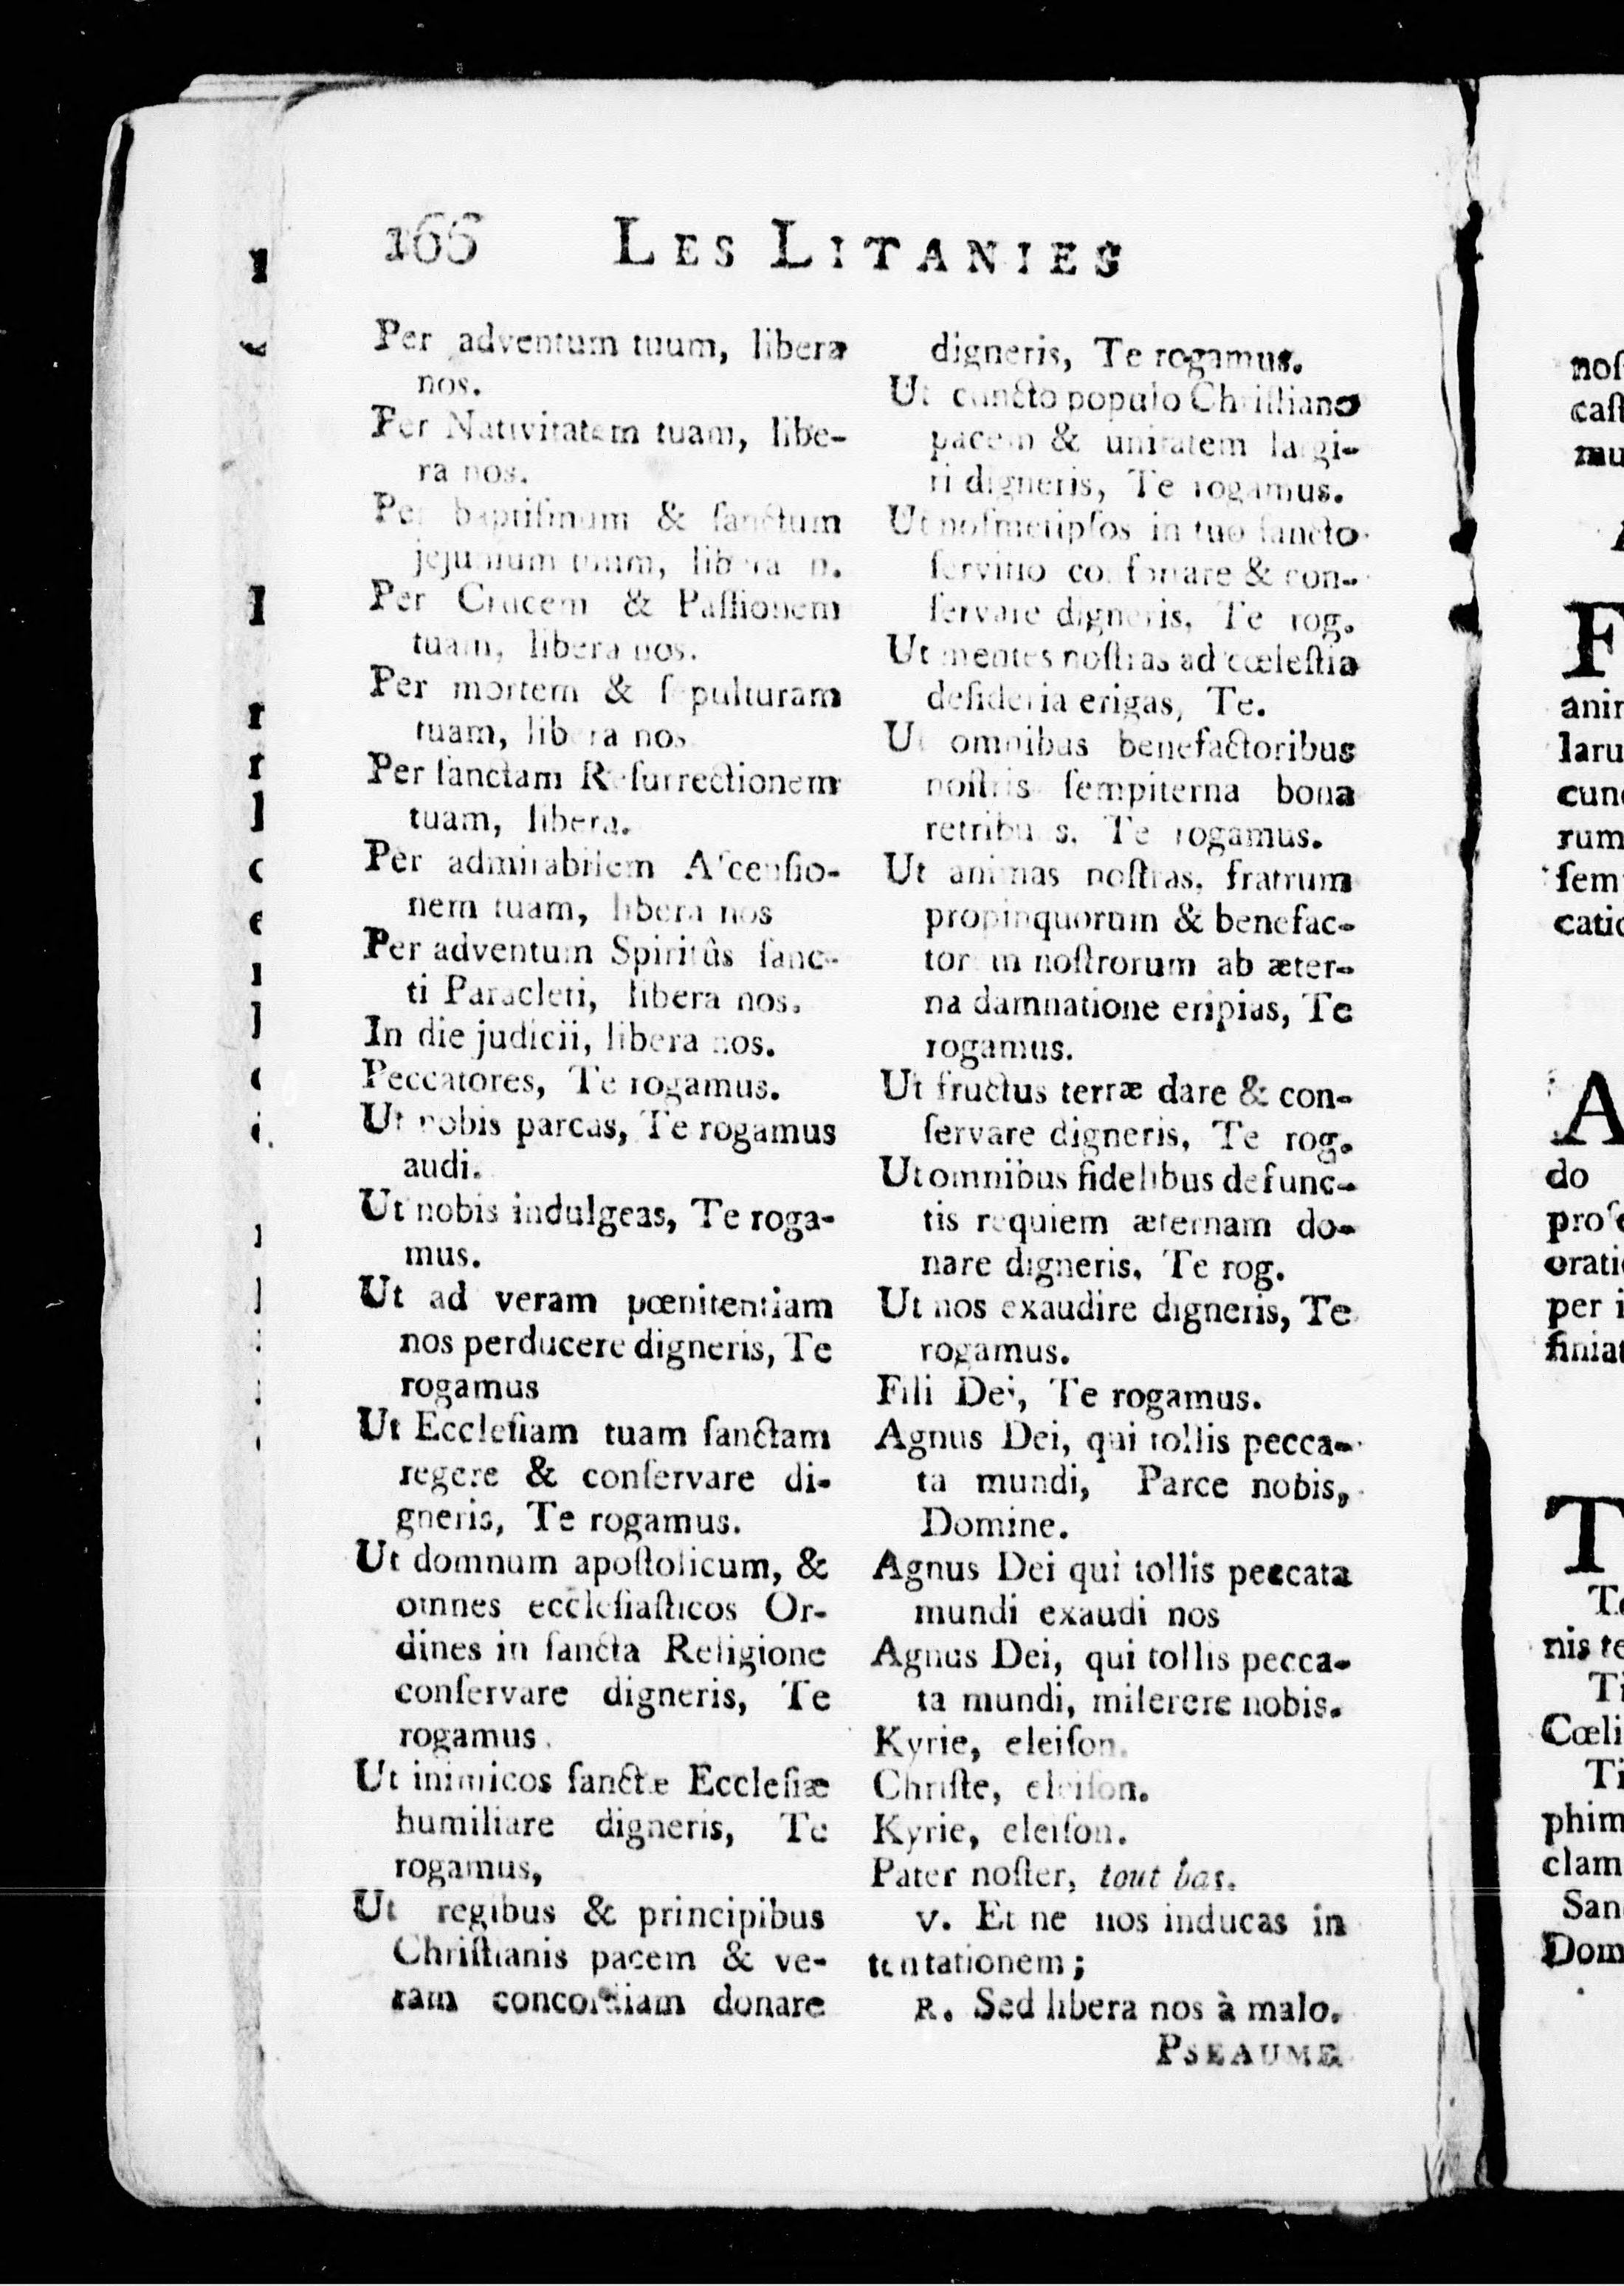 166 LES LITANIES
Per adventum tuum, libera
nos.
Per Nativitatem tuam, libe-
ra nos.
Per baptiſmum & ſanctum
jejunium tuum, libera n.
Per Crucem & Paſſionem
tuam, libera nos.
Per mortem & ſepulturam
tuam, libera nos
Per ſanctam Reſurrectionem
tuam, libera.
Per admirabilem Aſcenſio-
nem tuam, libera nos
Per adventum Spiritûs ſanc-
ti Paracleti, libera nos.
In die judicii, libera nos.
Peccatores, Te rogamus.
Ut nobis parcas, Te rogamus
audi.
Ut nobis indulgeas, Te roga-
mus.
Ut ad veram pœnitentiam
nos perducere digneris, Te
rogamus
Ut Eccleſiam tuam ſanctam
regere & conſervare di-
gneris, Te rogamus.
Ut domnum apoſtolicum, &
omnes eccleſiaſticos Or-
dines in ſancta Religione
conſervare digneris, Te
rogamus.
Ut inimicos ſanctæ Eccleſiæ
humiliare digneris, Te
rogamus,
Ut regibus & principibus
Chriſtianis pacem & ve-
ram concordiam donare
digneris, Te rogamus.
Ut cuncto populo Chriſtiano
pacem & unitatem largi-
ri digneris, Te rogamus.
Ut noſmetipſos in tuo ſancto
ſervitio confortare & con-
ſervare digneris, Te rog.
Ut mentes noſtras ad cœleſtia
deſideria erigas, Te.
Ut omnibus benefactoribus
noſtris ſempiterna bona
retribuas, Te rogamus.
Ut animas noſtras, fratrum
propinquorum & benefac-
torum noſtrorum ab æter-
na damnatione eripias, Te
rogamus.
Ut fructus terræ dare & con-
ſervare digneris, Te rog.
Ut omnibus fidelibus defunc-
tis requiem æternam do-
nare digneris, Te rog.
Ut nos exaudire digneris, Te
rogamus.
Fili Dei, Te rogamus.
Agnus Dei, qui tollis pecca-
ta mundi, Parce nobis,
Domine.
Agnus Dei qui tollis peccata
mundi exaudi nos
Agnus Dei, qui tollis pecca-
ta mundi, miſerere nobis.
Kyrie, eleiſon.
Chriſte, eleiſon.
Kyrie, eleiſon.
Pater noſter, tout bas.
V. Et ne nos inducas in
tentationem;
R. Sed libera nos à malo.
PSEAUME